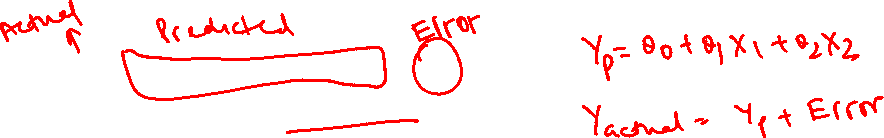 Actual Predicted Error
Yp = θ0 + θ1 X1 + θ2 X2
Yactual = Yp + Error